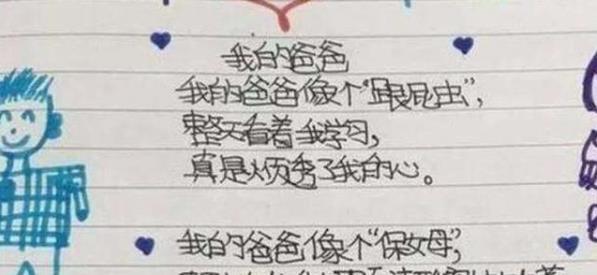 我的爸爸
我的爸爸像个"跟昆虫",
整天看着我学习,
真是烦透了我的心。
我的爸爸像个"保女母",